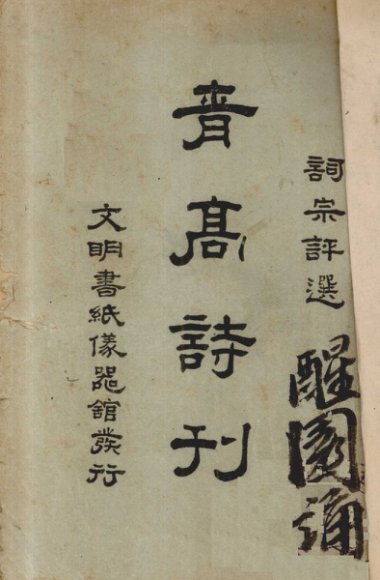 詞宗評選
醒園
青高詩刊
文明書紙儀器舘發行